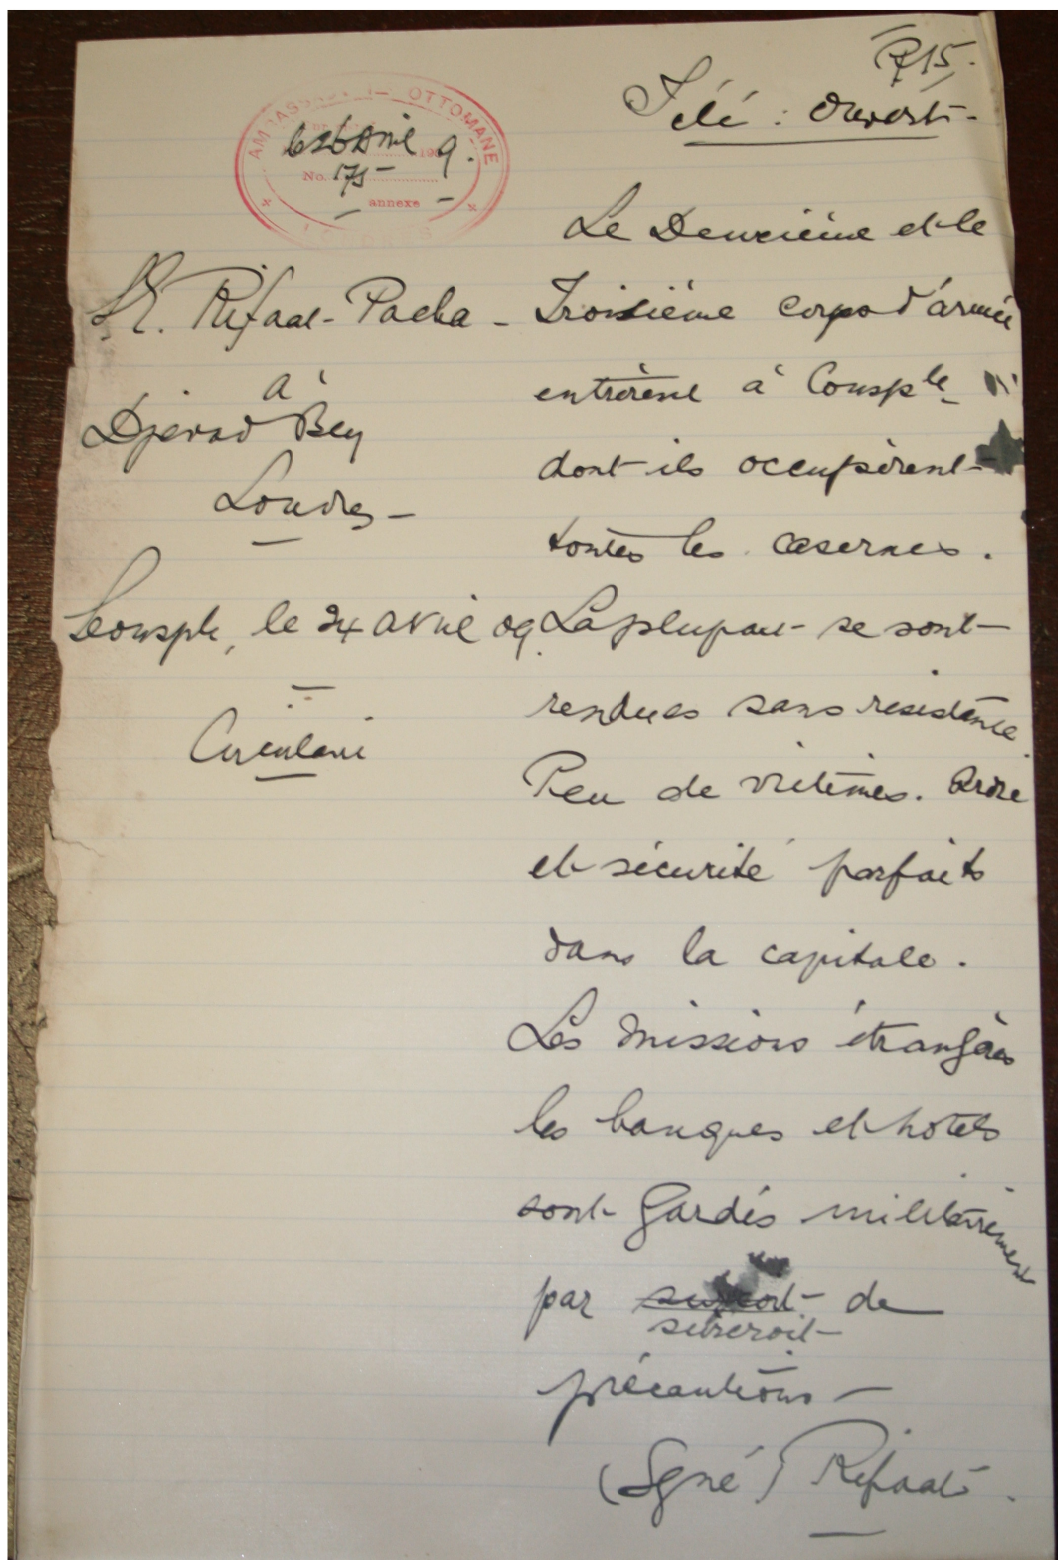 R/15.
Télé : Ouvert-
AMBASSADE OTTOMANE
le 26 Avril 1909.
No. 175
annexe
LONDRES
S.E. Rifaat-Pacha -
à
Djevad Bey
Londres -
Consple, le 24 avril 09.
Circulaire
Le Deuxième et le
Troisième corps d'armée
entrèrent à Consple
dont ils occupèrent
toutes les casernes.
La plupart se sont
rendues sans résistance.
Peu de victimes. Ordre
et sécurité parfaits
dans la capitale.
Les missions étrangères
les banques et hôtels
sont gardés militairement
par de
surcroit
précautions -
(Signé) Rifaat.